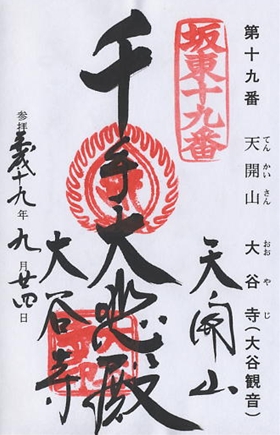 第十九番 天開山 大谷寺(大谷観音)
てん かい さん おお や じ
坂東十九番
天開山
千手大悲殿
大谷寺
参拝平成十九年九月廿四日